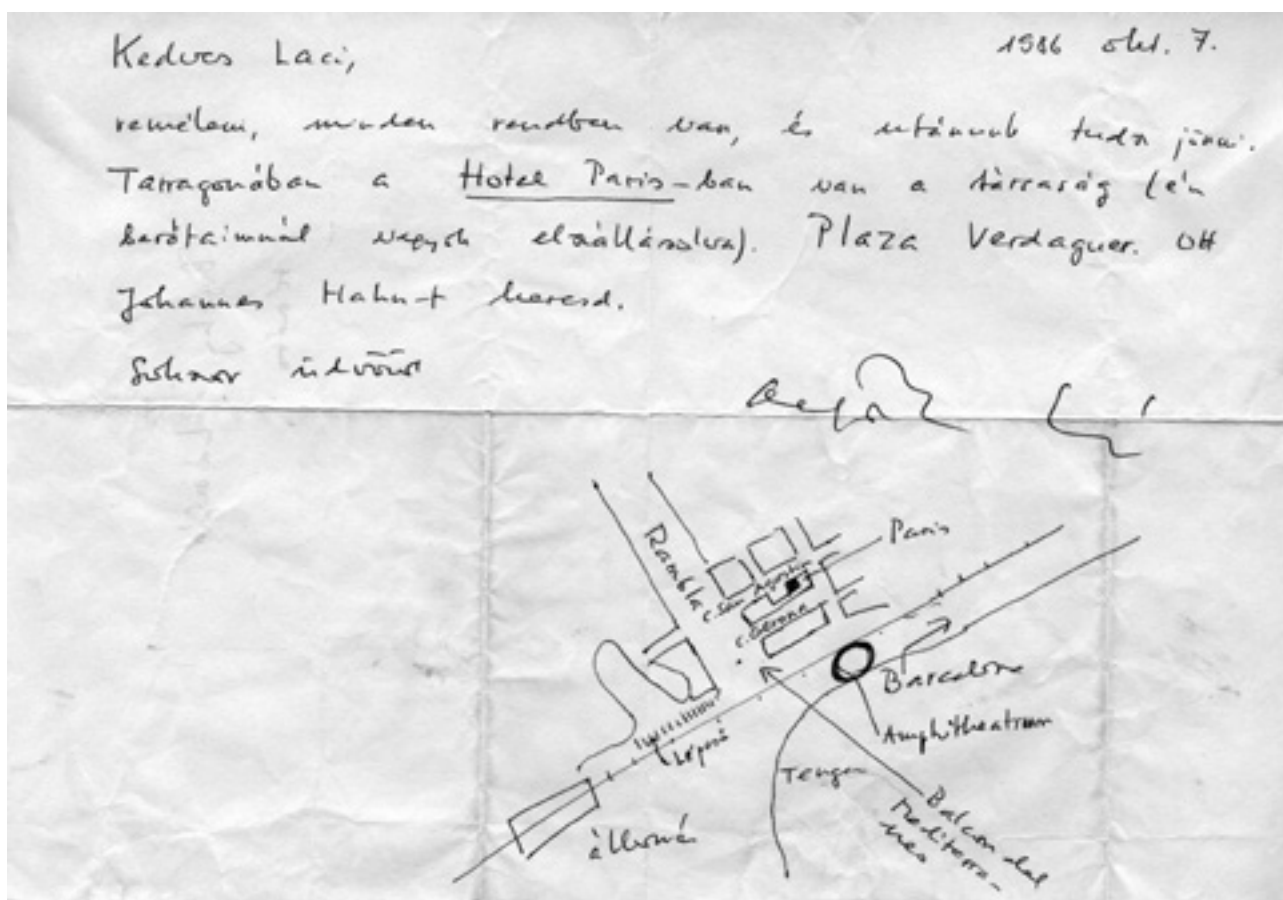 1986 okt. 7.
Kedves Laci,
remélem, minden rendben van, és utánunk tudsz jönni.
Tarragonában a Hotel Paris-ban van a társaság (én
barátaimnál vagyok elszállásolva). Plaza Verdaguer. Ott
Johannes Hahn-t keresd.
Sokszor üdvözöl
Paris
Rambla
c. San Agustin
c. Gerona
Barcelona
Amphitheatrum
Lépcső
Tenger
Balcon del
Mediterra-
neo
állomás